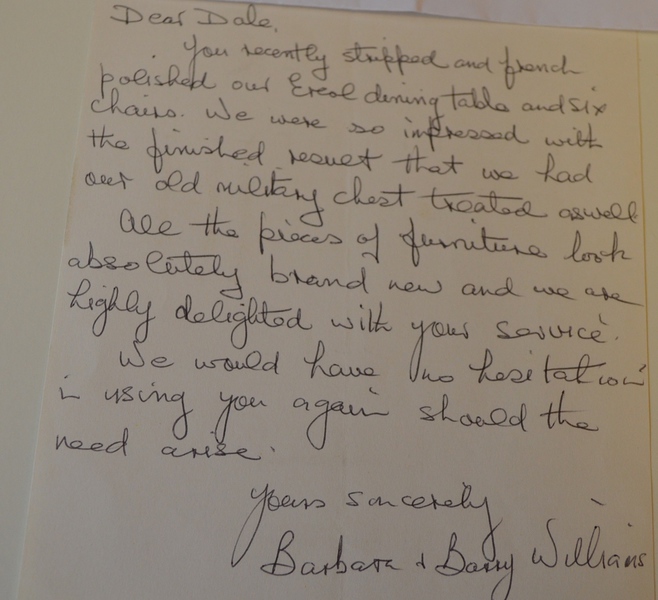 Dear Dale,
You recently stripped and french
polished our Ercol dining table and six
chairs. We were so impressed with
the finished result that we had
our old military chest treated aswell
All the pieces of furniture look
absolutely brand new and we are
highly delighted with your service.
We would have no hesitation
in using you again should the
need arise.
Yours sincerely
Barbara + Barry Williams